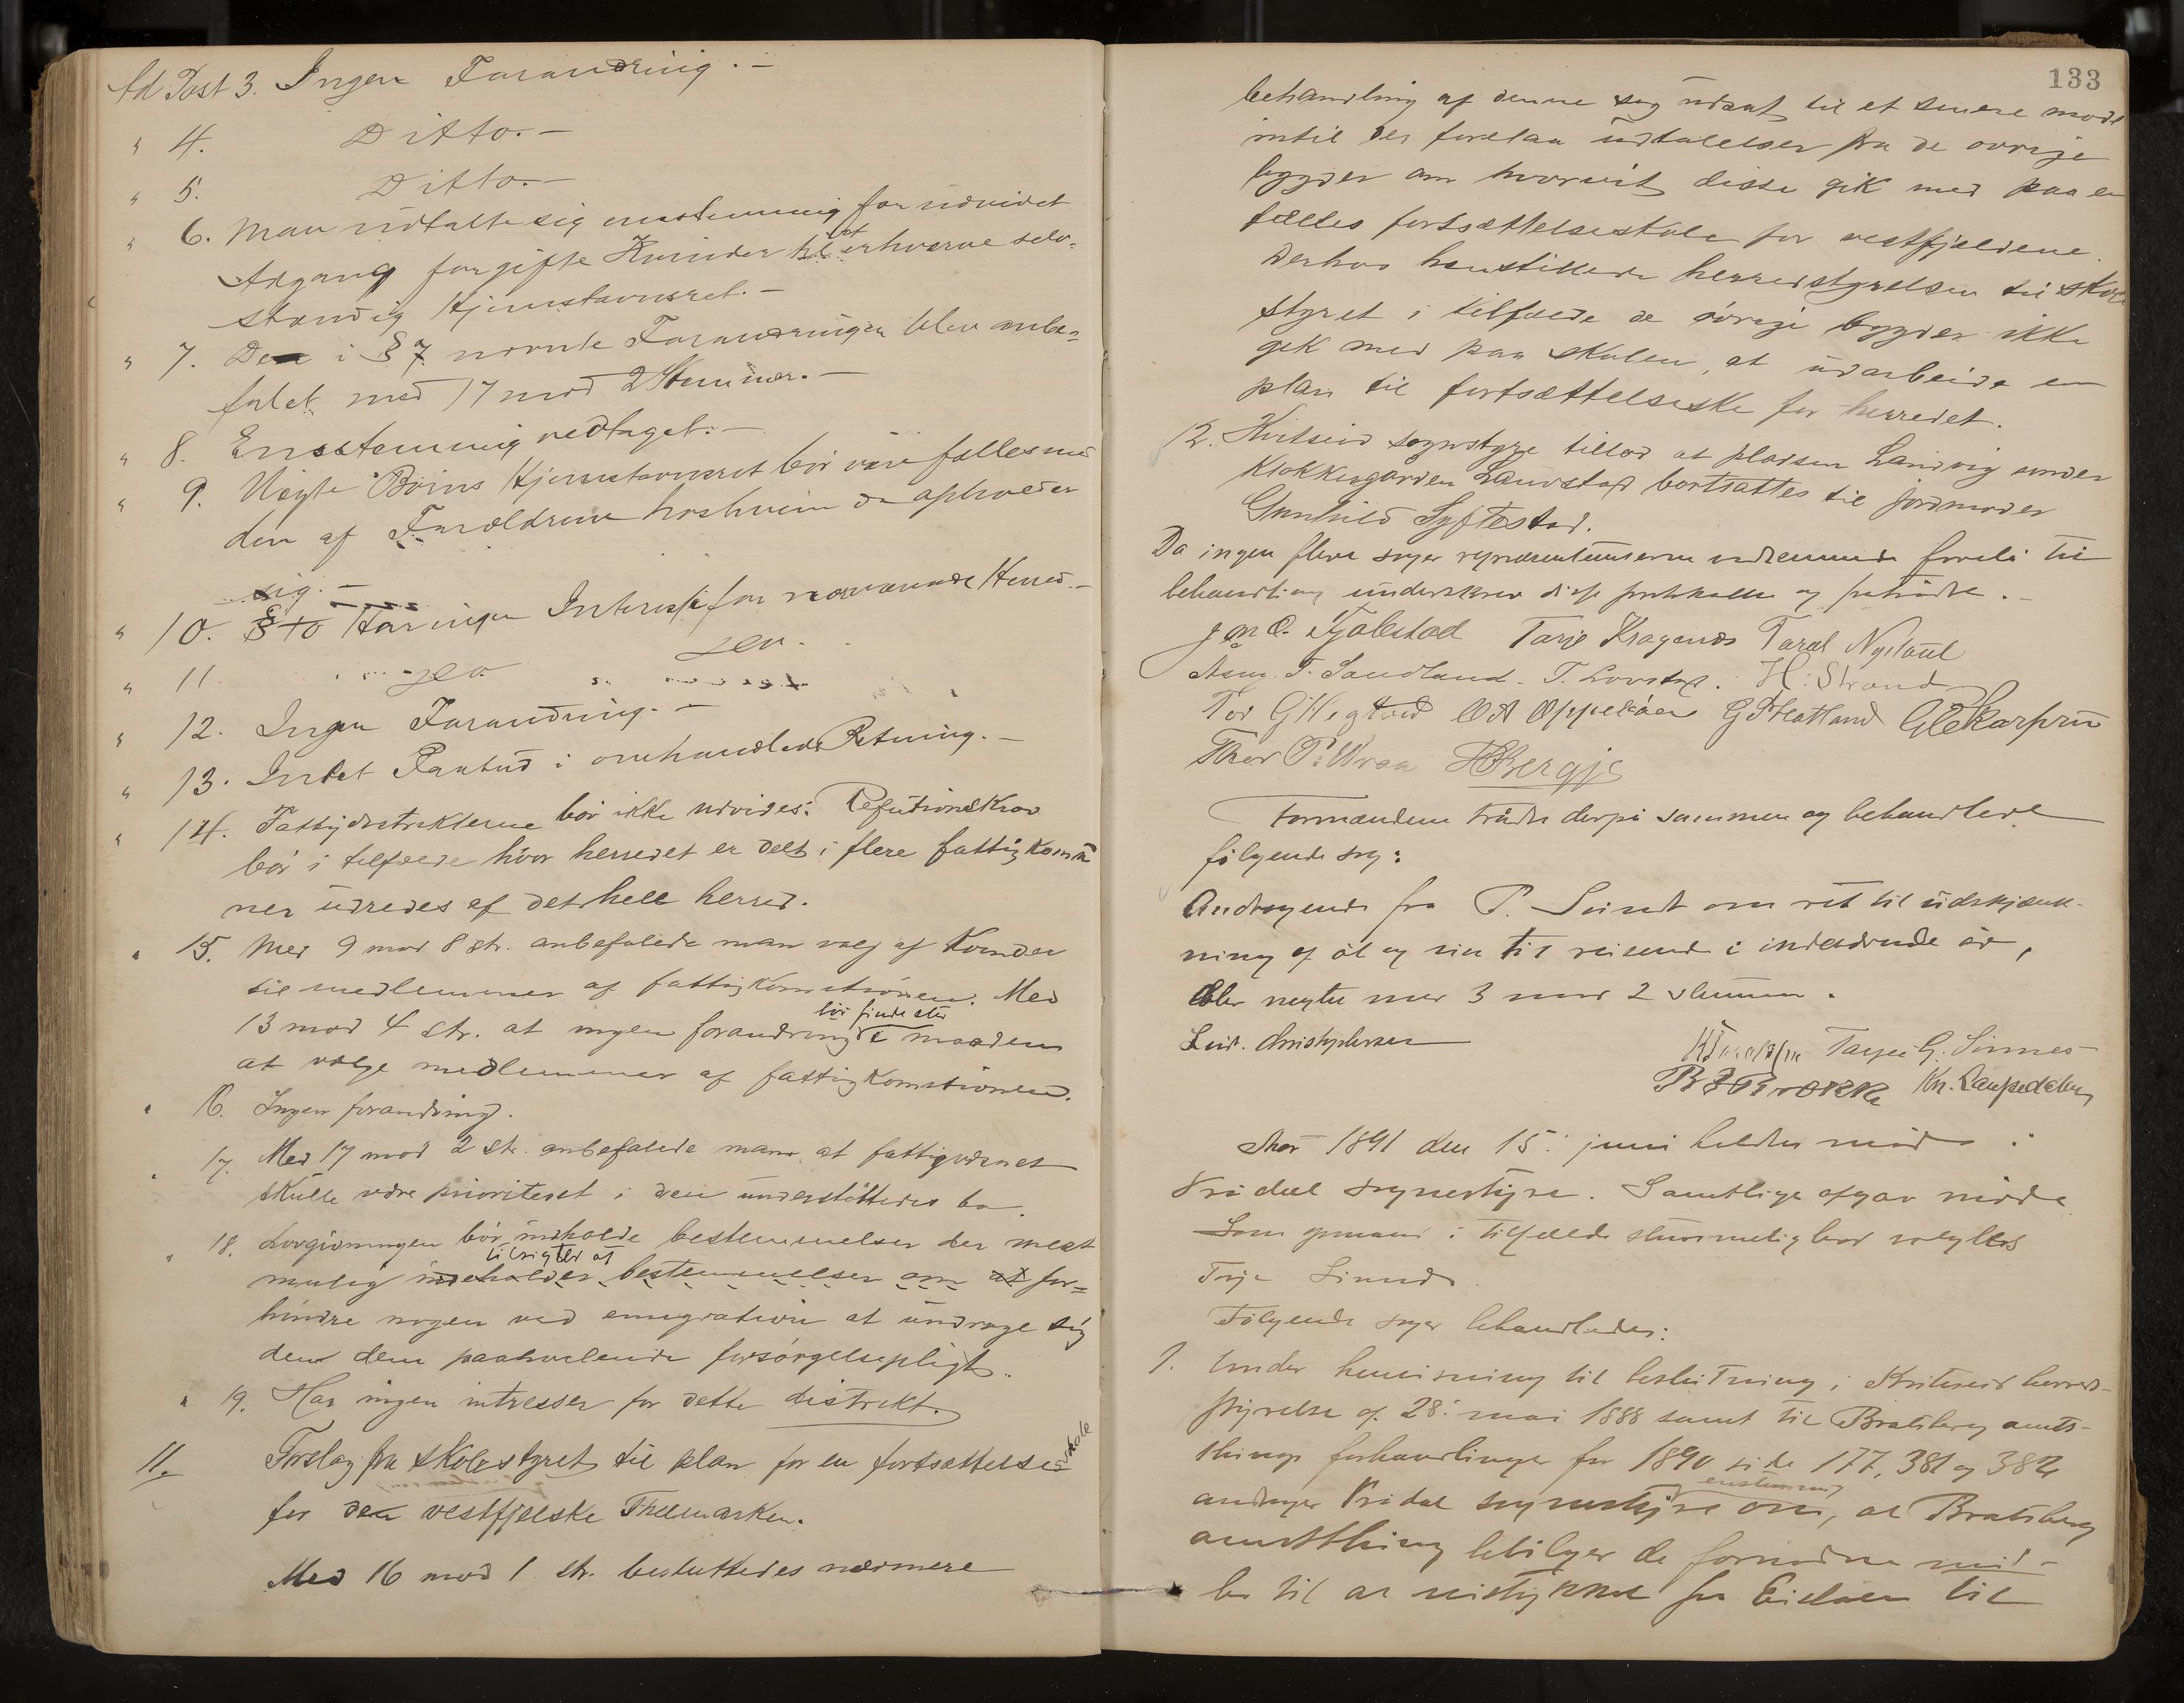 Ad Post 3. Ingen Forandring. —
" 4. Ditto. —
" 5. Ditto. —
" 6. Man udtalte sig enstemmig for udvidet
Adgang for gifte Kvinder til at erhverve selv-
stændig Hjemstavnsret. —
" 7. Den i § 7 nævnte Forandringen blev anbe-
falet med 17 mod 2 Stemmer. —
" 8. Enstemmig vedtaget. —
" 9. Uægte Börns Hjemstavnsret bör være fælles med
den af Forældrene hos hvem de opholder
sig. —
" 10. § 10 Har ingen Interesse for nærværende Herred. —
" 11. do. do.
" 12. Ingen Forandring. —
" 13. Intet Paabud i omhandlede Retning. —
" 14. Fattigdistrikterne bör ikke udvides. Refutionskrav
bör i tilfælde hvor herredet er delt i flere fattigkommu
ner udredes af det hele herred.
" 15. Med 9 mod 8 st. anbefalede man valg af Kvinder
til medlemmer af fattigkomitionen. Med
13 mod 4 st. at ingen forandring bör finde sted i maaden
at vælge medlemmer af fattigkomitionen.
" 16. Ingen forandring.
" 17. Med 17 mod 2 st. anbefalede man at fattigvæsnet
skulle være prioriteret i den understöttedes bo.
" 18. Lovgivningen bör indholde bestemmelser der mest
mulig tilsigter at indeholder bestemmelser om at for-
hindre nogen ved emigration at undrage sig
den dem paahvilende forsörgelsepligt.
" 19. Har ingen intresser for dette distrikt.
11. Forslag fra skolestyret til plan for en fortsættelsesskole
for den vestfjelske Thelemarken.
Med 16 mod 1 st. besluttedes nærmere
133
behandling af denne sag udsat til et senere möde
intil der forelaa udtalelser fra de övrige
bygder om hvorvit disse gik med paa en
fælles fortsættelseskole for vestfjeldene.
Derhos henstillede herredstyrelsen til skole
styret i tilfælde de övrige bygder ikke
gik med paa skolen, at udarbeide en
plan til fortsættelseske for herredet.
12. Kvitseid sognstyre tillod at pladsen Landvig under
Klokkergaarden Laurstad bortsattes til jordmoder
Gunhild Syftestad.
Da ingen flere sager repræsentanterne vedkommende forelå til
behandling underskrev disse protokollen og fratraadte. —
J. M. O. Fjölestad Tarje Kragenæs Taral Nystaul
Asm. T. Sandland. T. Lovstad. H. Strand
Tor G Hegtveid G P Hatland
Thor P. Vraa H Bergje
Formændene trådte derpå sammen og behandlede
fölgende sag:
Andragende fra P. Sundt om ret til udskjænk-
ning af öl og vin til reisende i indeværende år,
blev negtet med 3 mod 2 stemmer.
Leid. Christophersen Tarjei G. Sinnes
Kn. Laupedalen
Aar 1891 den 15. juni holdtes möde i
Vrådal sognestyre. Samtlige opgav möde
Som gjenmand i tilfælde stemmelighed valgtes
Terje Sinnes.
Fölgende sager behandledes:
1. Under henvisning til beslutning i Kvitseid herreds-
styrelse af 28. mai 1888 samt til Bratsberg amts-
things forhandlinger for 1890 side 177, 381 og 382
andrager Vrådal sognestyre enstemmig om, at Bratsberg
amtsthing bevilger de fornödne mid-
ler til at veistykket fra Eidalen til